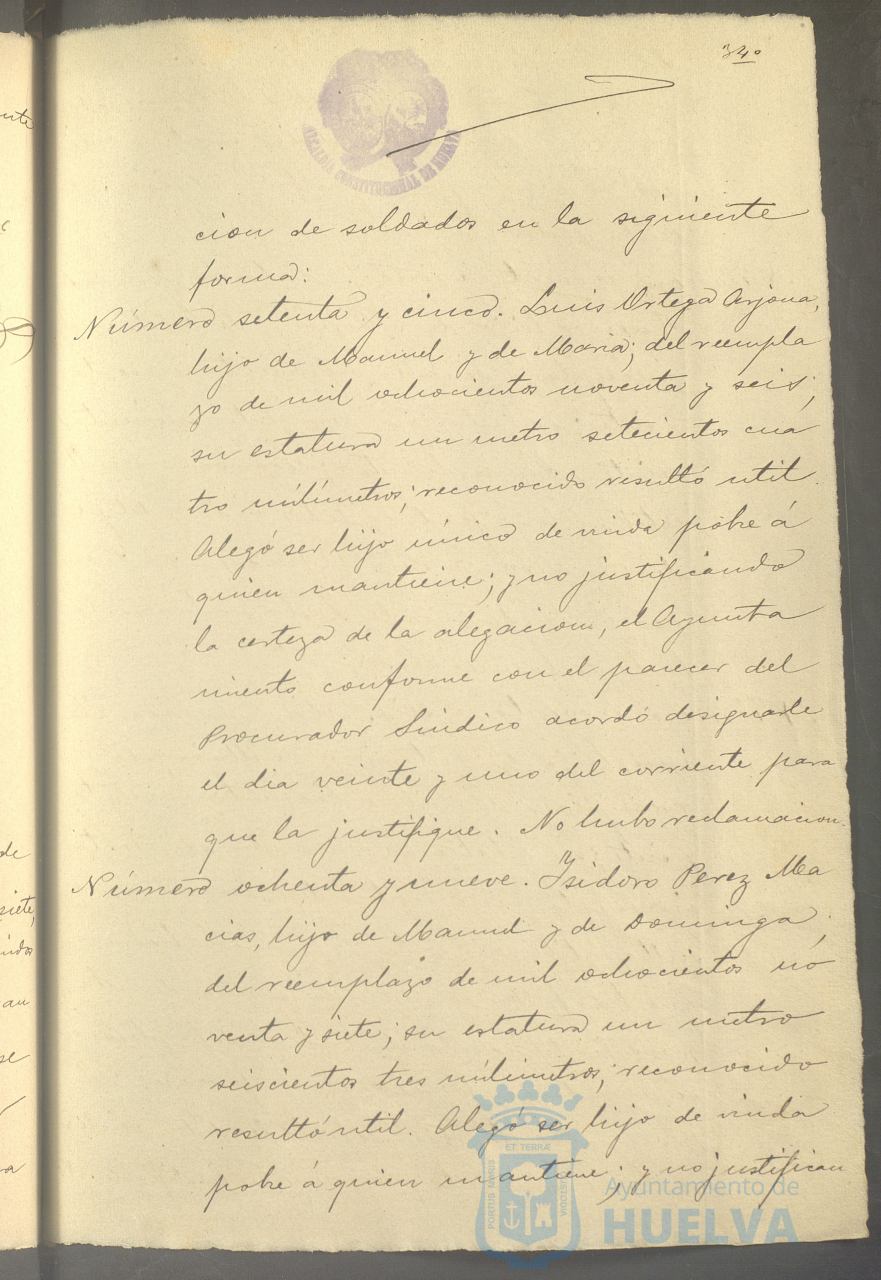 34º
ALCALDIA CONSTITUCIONAL DE HUELVA
cion de soldados en la siguiente
forma:
Número setenta y cinco. Luis Ortega Arjona,
hijo de Manuel y de Maria; del reempla
zo de mil ochocientos noventa y seis;
su estatura un metro setecientos cua
tro milímetros; reconocido resultó util.
Alegó ser hijo único de viuda pobre á
quien mantiene; y no justificando
la certeza de la alegacion, el Ayunta
miento conforme con el parecer del
Procurador Sindico acordó designarle
el dia veinte y uno del corriente para
que la justifique. No hubo reclamacion.
Número ochenta y nueve. Isidoro Perez Ma
cias, hijo de Manuel y de Dominga;
del reemplazo de mil ochocientos no
venta y siete; su estatura un metro
seiscientos tres milímetros; reconocido
resultó util. Alegó ser hijo de viuda
pobre á quien mantiene; y no justifican
PORTUS MARIS ET TERRÆ CUSTODIA
Ayuntamiento de
HUELVA